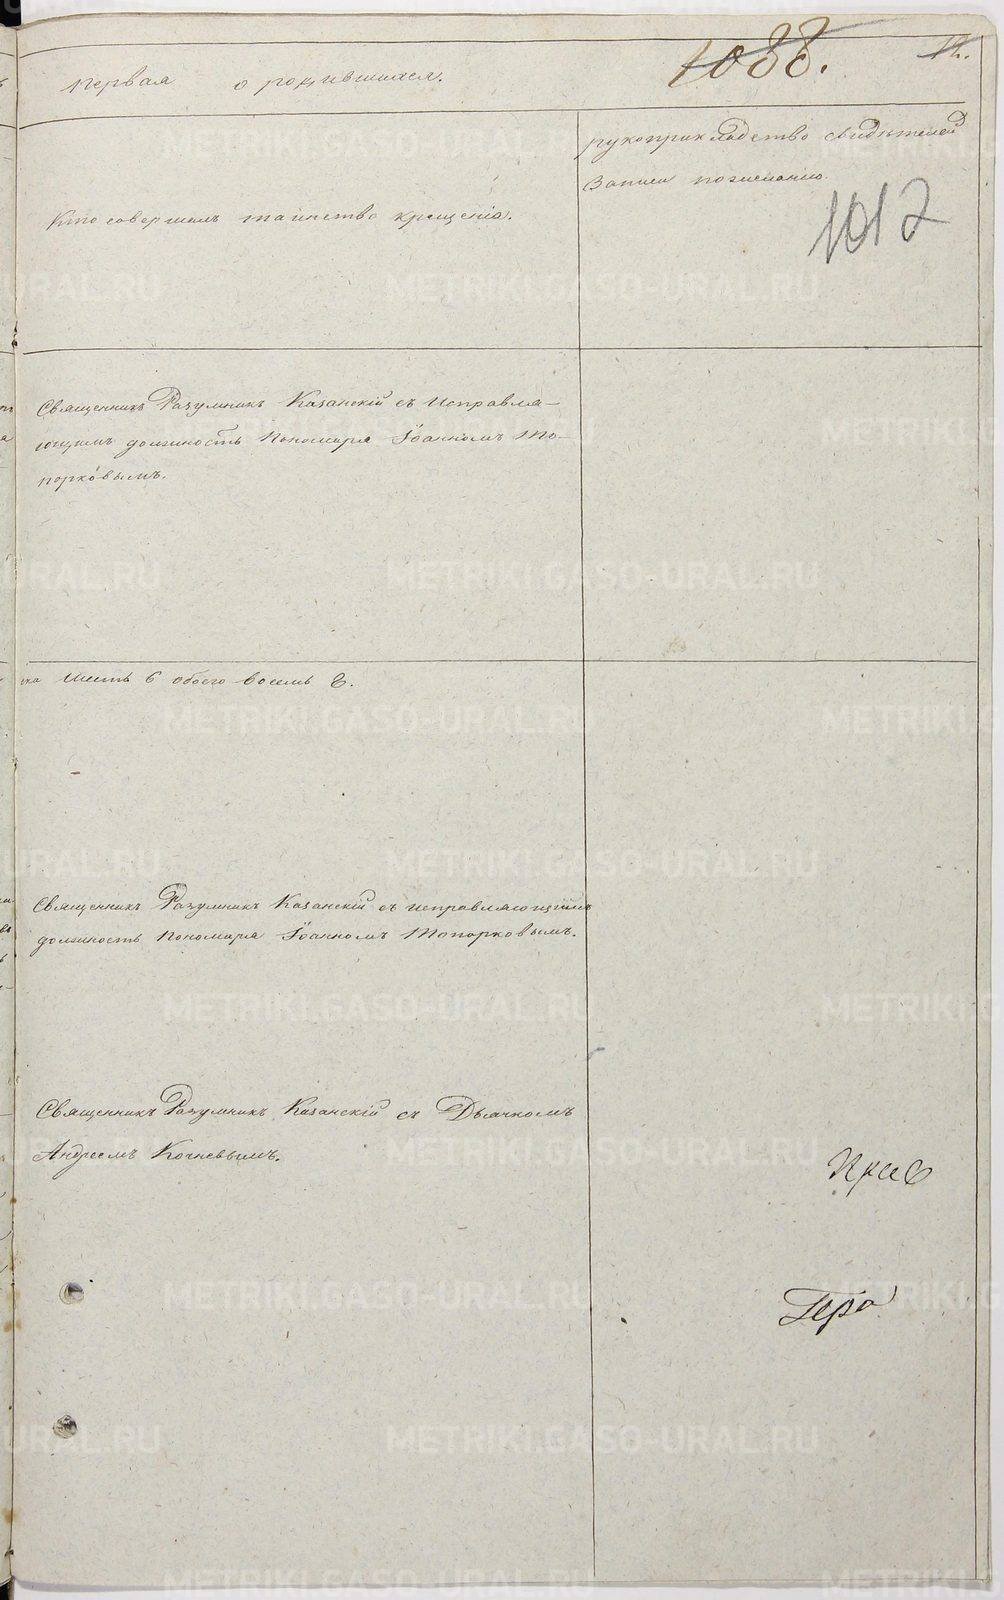 первая о родившихся.
1088.
12.
рукоприкладство свидѣтелей
Записи по желанію.
1012
Кто совершилъ таинство крещенія.
Священникъ Разумникъ Казанскій съ исправля-
ющимъ должность Пономаря Іоанномъ То-
порковымъ.
ска шесть 6 обоего восемь 8.
Священникъ Разумникъ Казанскій съ исправляющимъ
должность Пономаря Іоанномъ Топорковымъ.
Священникъ Разумникъ Казанскій съ Дьячкомъ
Андреемъ Кочневымъ.
METRIKI.GASO-URAL.RU